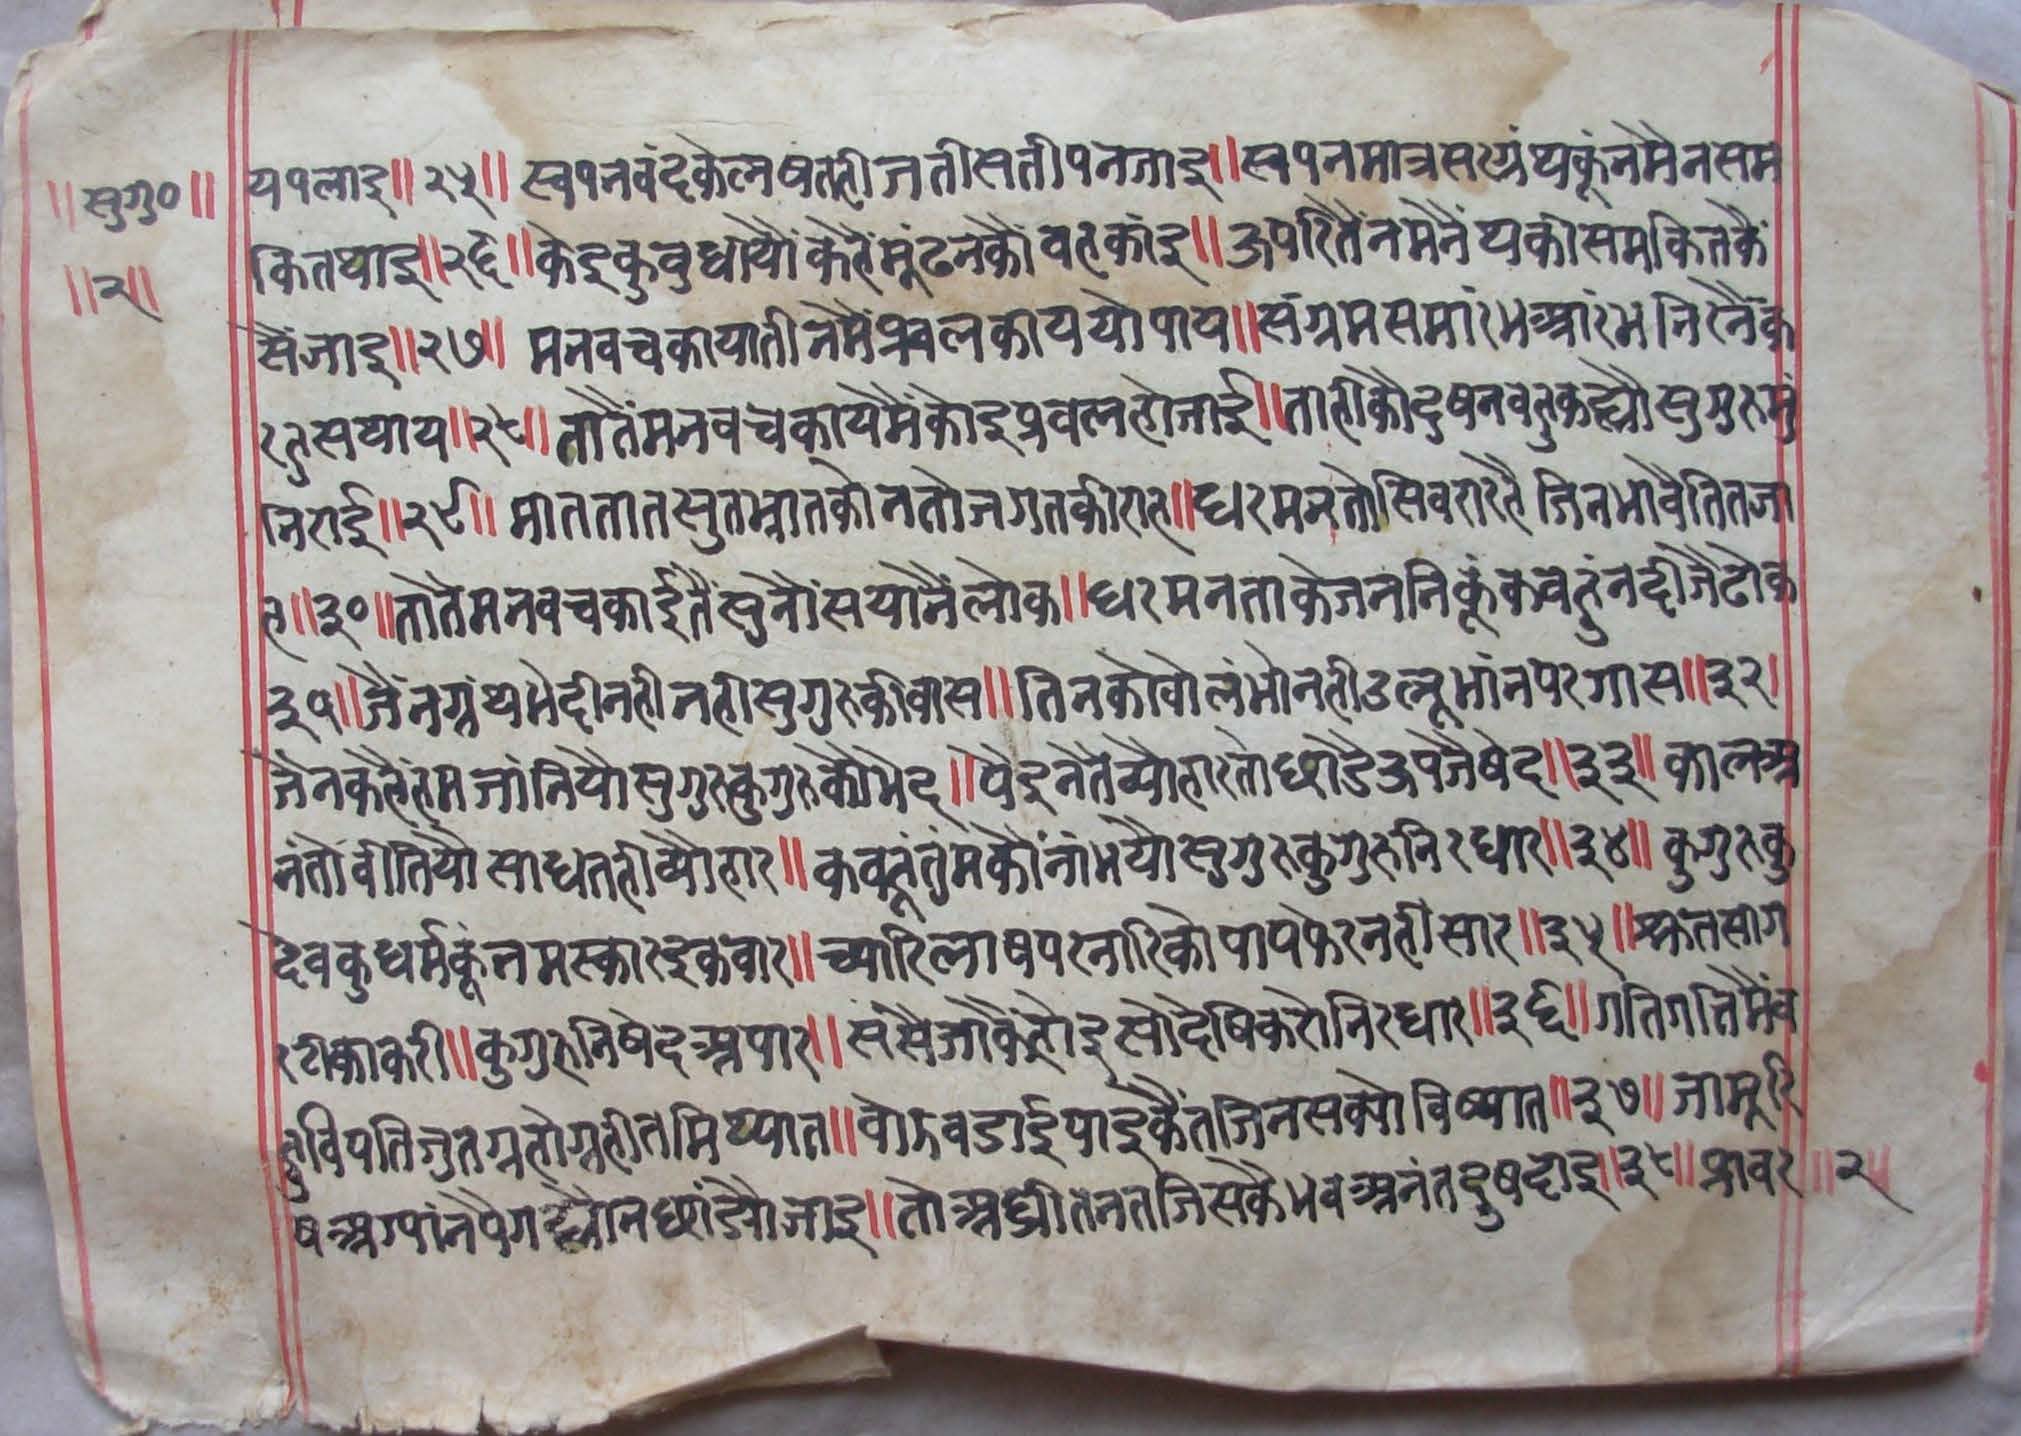 ॥सुगु०॥
॥२॥
यपलाइ॥२५॥ स्वपनवंदकेलषतही जतीसतीपनजाइ॥स्वपनमात्रसग्रंथकूंनमैनसम
कितथाइ॥२६॥केइकुवुधीयौंकहैंमूंढनकौंवहकांइ॥ऊपरितैंनमेनैंथकीसमकितकैं
सैंजाइ॥२७॥ मनवचकायातीनमैंप्रवलकाययोपाय॥संग्रमसमारंभआरंभनिरनैंक
रहुसथाय॥२८॥तातैंमनवचकायमैंकोइप्रवलहोजाई॥ताहीकौदुषनवहुकह्यौसुगुरुमुं
निराई॥२९॥ माततातसुतभ्रातकोनतोजगतकीराह॥धरमनतोसिवराहहै जिनभावैतितजा
ह॥३०॥तातेमनवचकाईतैंसुनौंसयांनैंलोक॥धरमनताकेजननिकूंकवहुंनदीजैढोक
३१॥जैंनग्रंथभेदीनहीनहीसुगुरुकीवास॥तिनकोवोलंभोनहीउल्लूभांनपरगास॥३२।
जैनकहैतंमजांनियौसुगुरुकुगुरुकौभेद॥पेइनतैव्यौहारतोछाडैऊपजैषेद॥३३॥ कालअ
नंतोवीतियौसाधतहीव्यौहार॥कवहूंतुमकौंनांभयौसुगुरुकुगुरुनिरधार॥३४॥ कुगुरुकु
देवकुधर्मकूंनमस्कारइकवार॥च्यारिलाषपरनारिकोपापफेरनहीसार॥३५॥श्रुतसाग
रटीकाकरी॥कुगुरुनिषेदअपार॥संसैजाकैहोइसोदेषिकरोनिरधार॥३६॥गतिगतिमैंव
हुविपतिजुतग्रहोग्रहीतमिथ्यात॥वोरुवडाईपाइकैंतजिनसक्योविष्यात॥३७॥जामूरि
षअग्यांनपैगह्यौनछांड्यौजाइ॥तोअग्रहीतनतजिसकैभवअनंतदुषदाइ॥३८॥श्रावर
॥२॥